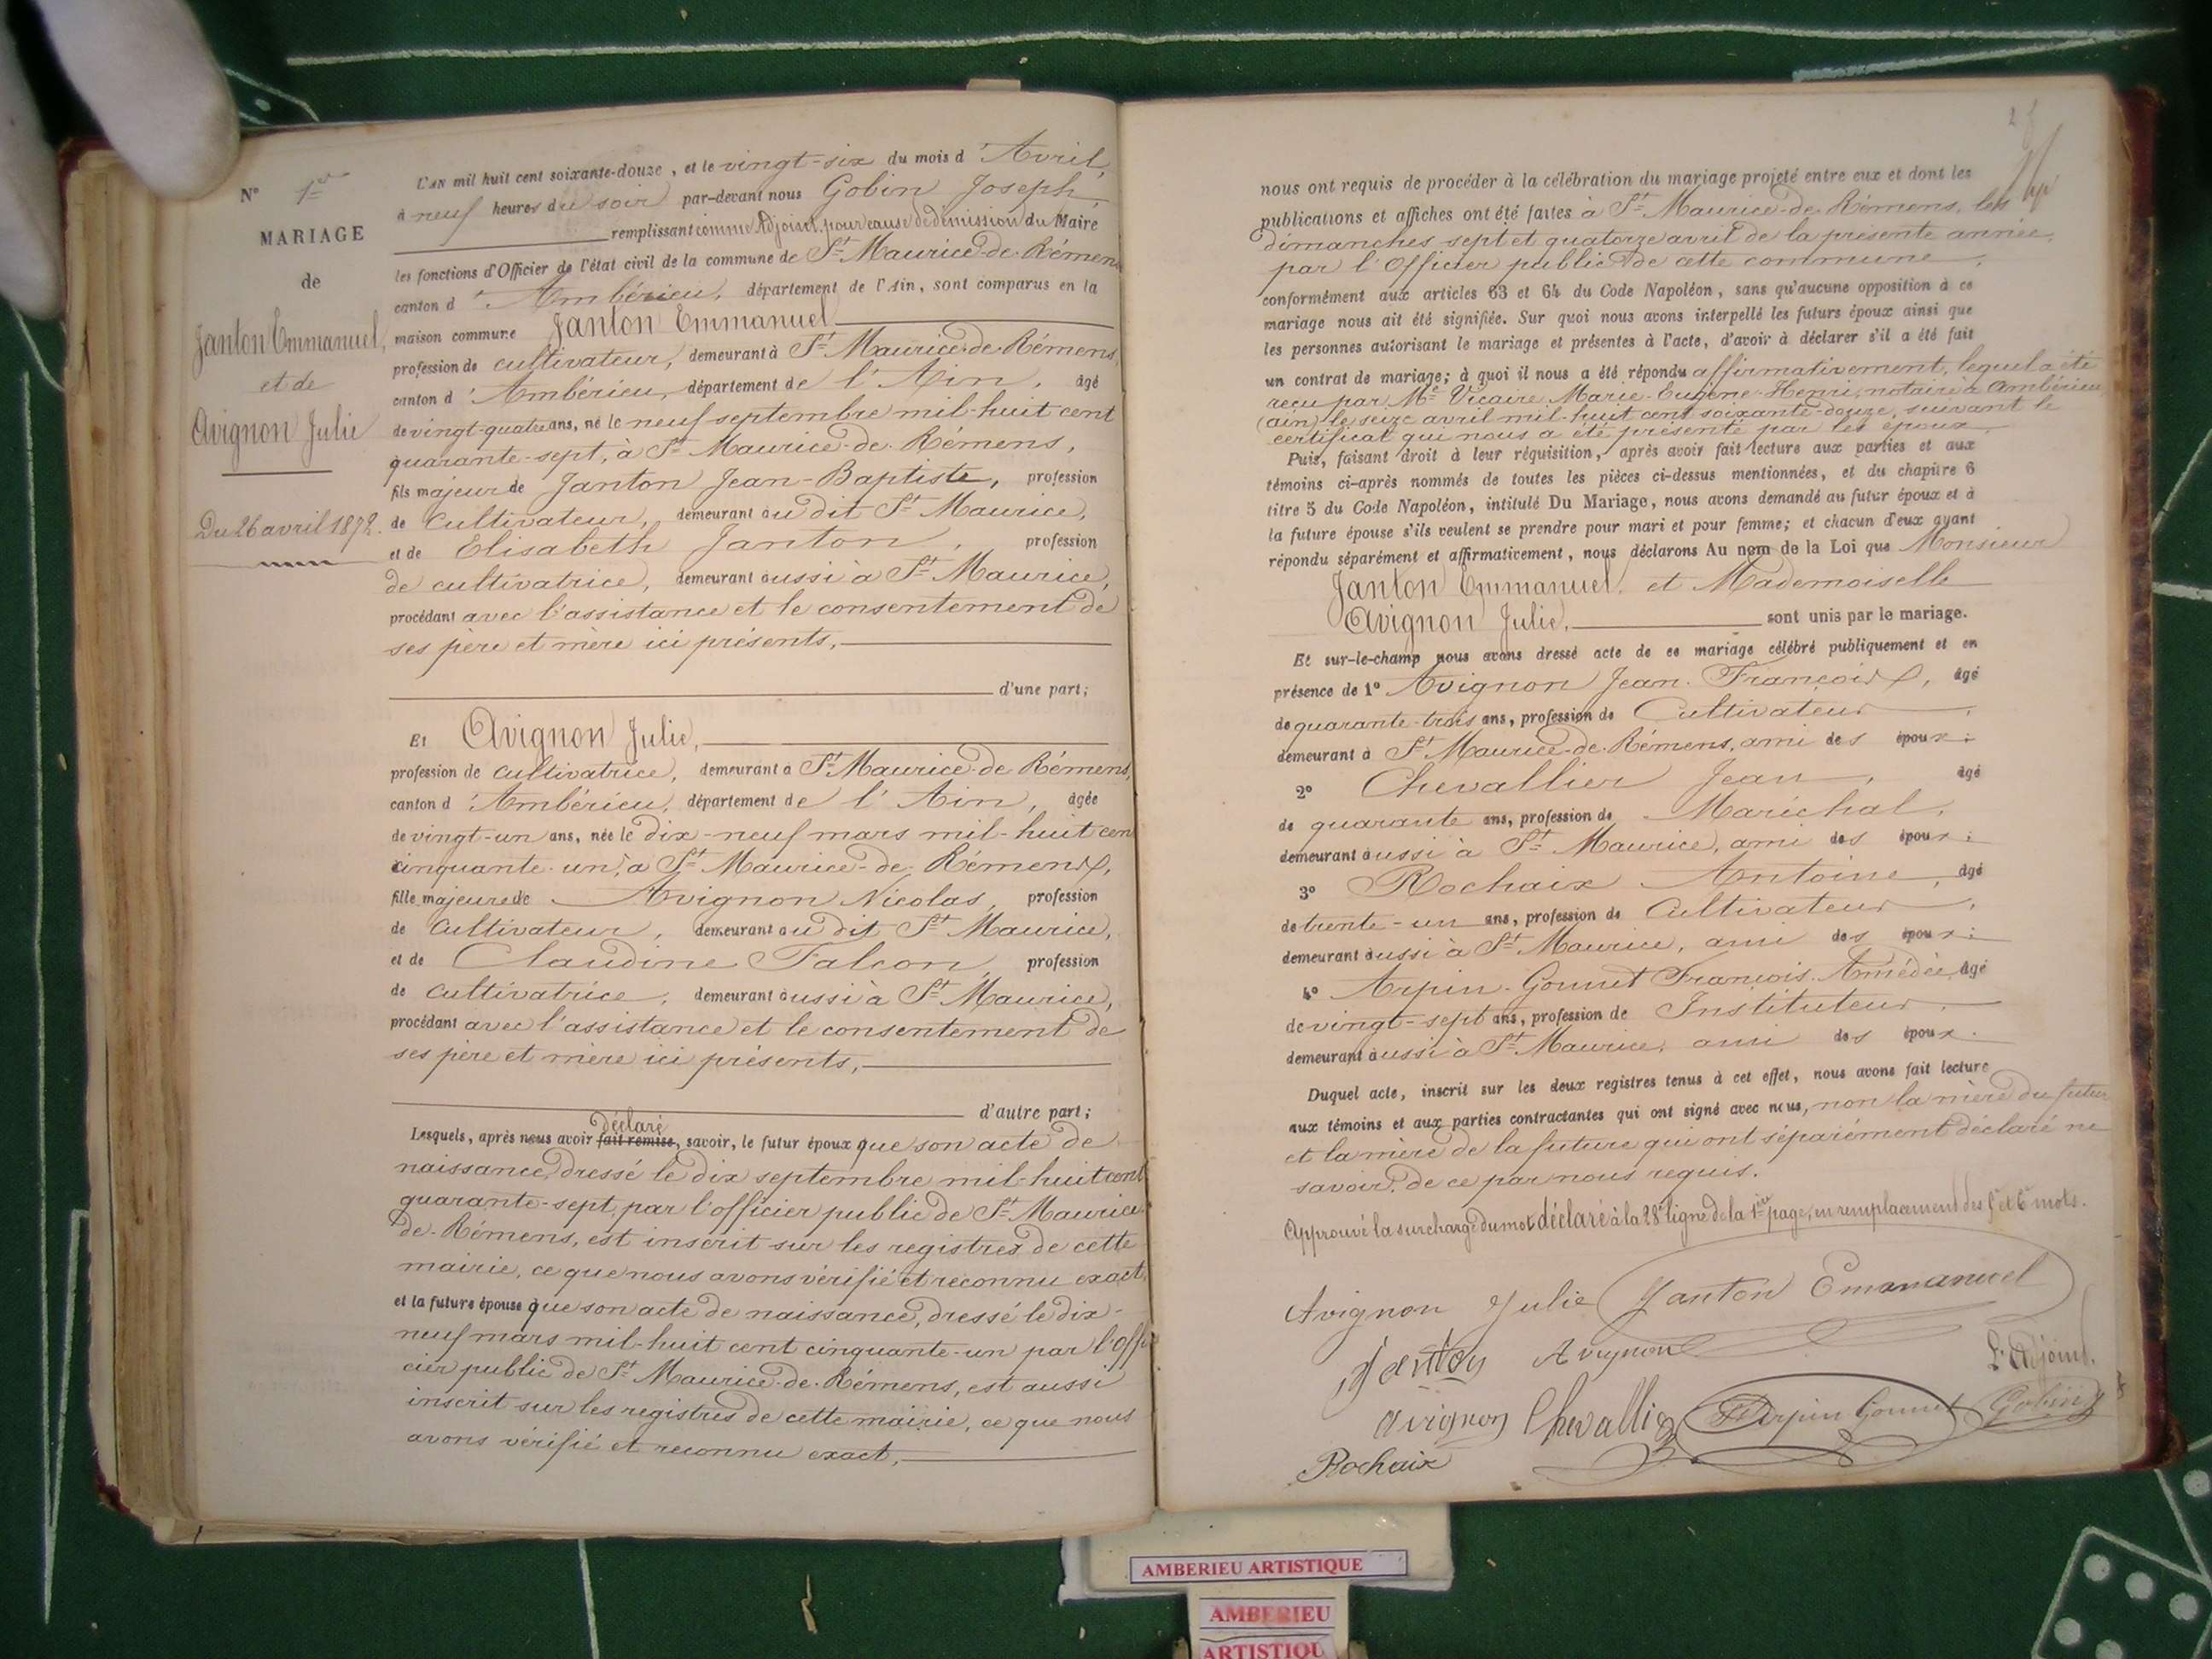 N° 1er
MARIAGE
de
Janton Emmanuel,
et de
Avignon Julie
Du 26 avril 1872.
L'AN mil huit cent soixante-douze, et le vingt-six du mois d'Avril,
à neuf heures du soir par-devant nous Gobin Joseph,
remplissant comme Adjoint, pour cause de démission du Maire
les fonctions d'Officier de l'état civil de la commune de St Maurice-de-Rémens
canton d'Ambérieu, département de l'Ain, sont comparus en la
maison commune Janton Emmanuel
profession de cultivateur, demeurant à St Maurice-de-Rémens,
canton d'Ambérieu, département de l'Ain, âgé
de vingt-quatre ans, né le neuf septembre mil-huit cent
quarante-sept, à St Maurice-de-Rémens,
fils majeur de Janton Jean-Baptiste, profession
de Cultivateur, demeurant au dit St Maurice,
et de Elisabeth Janton, profession
de cultivatrice, demeurant aussi à St Maurice,
procédant avec l'assistance et le consentement de
ses père et mère ici présents,
d'une part;
Et Avignon Julie,
profession de cultivatrice, demeurant à St Maurice-de-Rémens,
canton d'Ambérieu, département de l'Ain, âgée
de vingt-un ans, née le dix-neuf mars mil-huit cen
cinquante-un, à St Maurice-de-Rémens,
fille majeure de Avignon Nicolas, profession
de Cultivateur, demeurant au dit St Maurice,
et de Claudine Falcon, profession
de cultivatrice, demeurant aussi à St Maurice,
procédant avec l'assistance et le consentement de
ses père et mère ici présents,
d'autre part;
déclaré
Lesquels, après nous avoir fait remise, savoir, le futur époux que son acte de
naissance, dressé le dix septembre mil-huit cent
quarante-sept, par l'officier public de St Maurice-
de-Rémens, est inscrit sur les registres de cette
mairie, ce que nous avons vérifié et reconnu exact,
et la future épouse que son acte de naissance, dressé le dix-
neuf mars mil-huit cent cinquante-un par l'offi
cier public de St Maurice-de-Rémens, est aussi
inscrit sur les registres de cette mairie, ce que nous
avons vérifié et reconnu exact,
nous ont requis de procéder à la célébration du mariage projeté entre eux et dont les
publications et affiches ont été faites à St Maurice-de-Rémens, les
dimanches sept et quatorze avril de la présente année,
par l'Officier public de cette commune,
conformément aux articles 63 et 64 du Code Napoléon, sans qu'aucune opposition à ce
mariage nous ait été signifiée. Sur quoi nous avons interpellé les futurs époux ainsi que
les personnes autorisant le mariage et présentes à l'acte, d'avoir à déclarer s'il a été fait
un contrat de mariage; à quoi il nous a été répondu affirmativement, lequel a été
reçu par Me Vicaire Marie-Eugène-Henri, notaire à Ambérieu
(ain) le seize avril mil-huit cent soixante-douze, suivant le
certificat qui nous a été présenté par les époux.
Puis, faisant droit à leur réquisition, après avoir fait lecture aux parties et aux
témoins ci-après nommés de toutes les pièces ci-dessus mentionnées, et du chapitre 6
titre 5 du Code Napoléon, intitulé Du Mariage, nous avons demandé au futur époux et à
la future épouse s'ils veulent se prendre pour mari et pour femme; et chacun d'eux ayant
répondu séparément et affirmativement, nous déclarons Au nom de la Loi que Monsieur
Janton Emmanuel, et Mademoiselle
Avignon Julie, sont unis par le mariage.
Et sur-le-champ nous avons dressé acte de ce mariage célébré publiquement et en
présence de 1° Avignon Jean-François, âgé
de quarante-trois ans, profession de Cultivateur,
demeurant à St Maurice-de-Rémens, ami des époux;
2° Chevallier Jean, âgé
de quarante ans, profession de Maréchal,
demeurant aussi à St Maurice, ami des époux;
3° Rochaix Antoine, âgé
de trente-un ans, profession de Cultivateur,
demeurant aussi à St Maurice, ami des époux;
4° Arpin-Gonnet François-Amédée, âgé
de vingt-sept ans, profession de Instituteur,
demeurant aussi à St Maurice, ami des époux.
Duquel acte, inscrit sur les deux registres tenus à cet effet, nous avons fait lecture
aux témoins et aux parties contractantes qui ont signé avec nous, non la mère du futur
et la mère de la future qui ont séparément déclaré ne
savoir, de ce par nous requis.
Approuvé la surcharge du mot déclaré à la 28e ligne de la 1ère page, en remplacement des 5e et 6e mots.
Avignon Julie Janton Emmanuel
Janton Avignon L'Adjoint,
avignon Chevallier Arpin Gonnet Gobin J
Rochaix
AMBERIEU ARTISTIQUE
AMBERIEU
ARTISTIQU